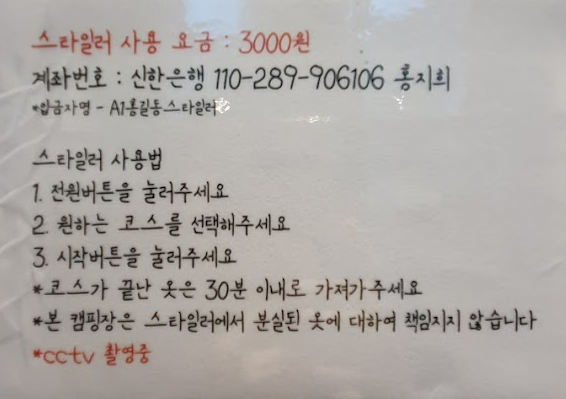 스타일러 사용 요금 : 3000원
계좌번호 : 신한은행 110-289-906106 홍지희
*입금자명 - A1홍길동스타일러
스타일러 사용법
1. 전원버튼을 눌러주세요
2. 원하는 코스를 선택해주세요
3. 시작버튼을 눌러주세요
*코스가 끝난 옷은 30분 이내로 가져가주세요
*본 캠핑장은 스타일러에서 분실된 옷에 대하여 책임지지 않습니다
*cctv 촬영중